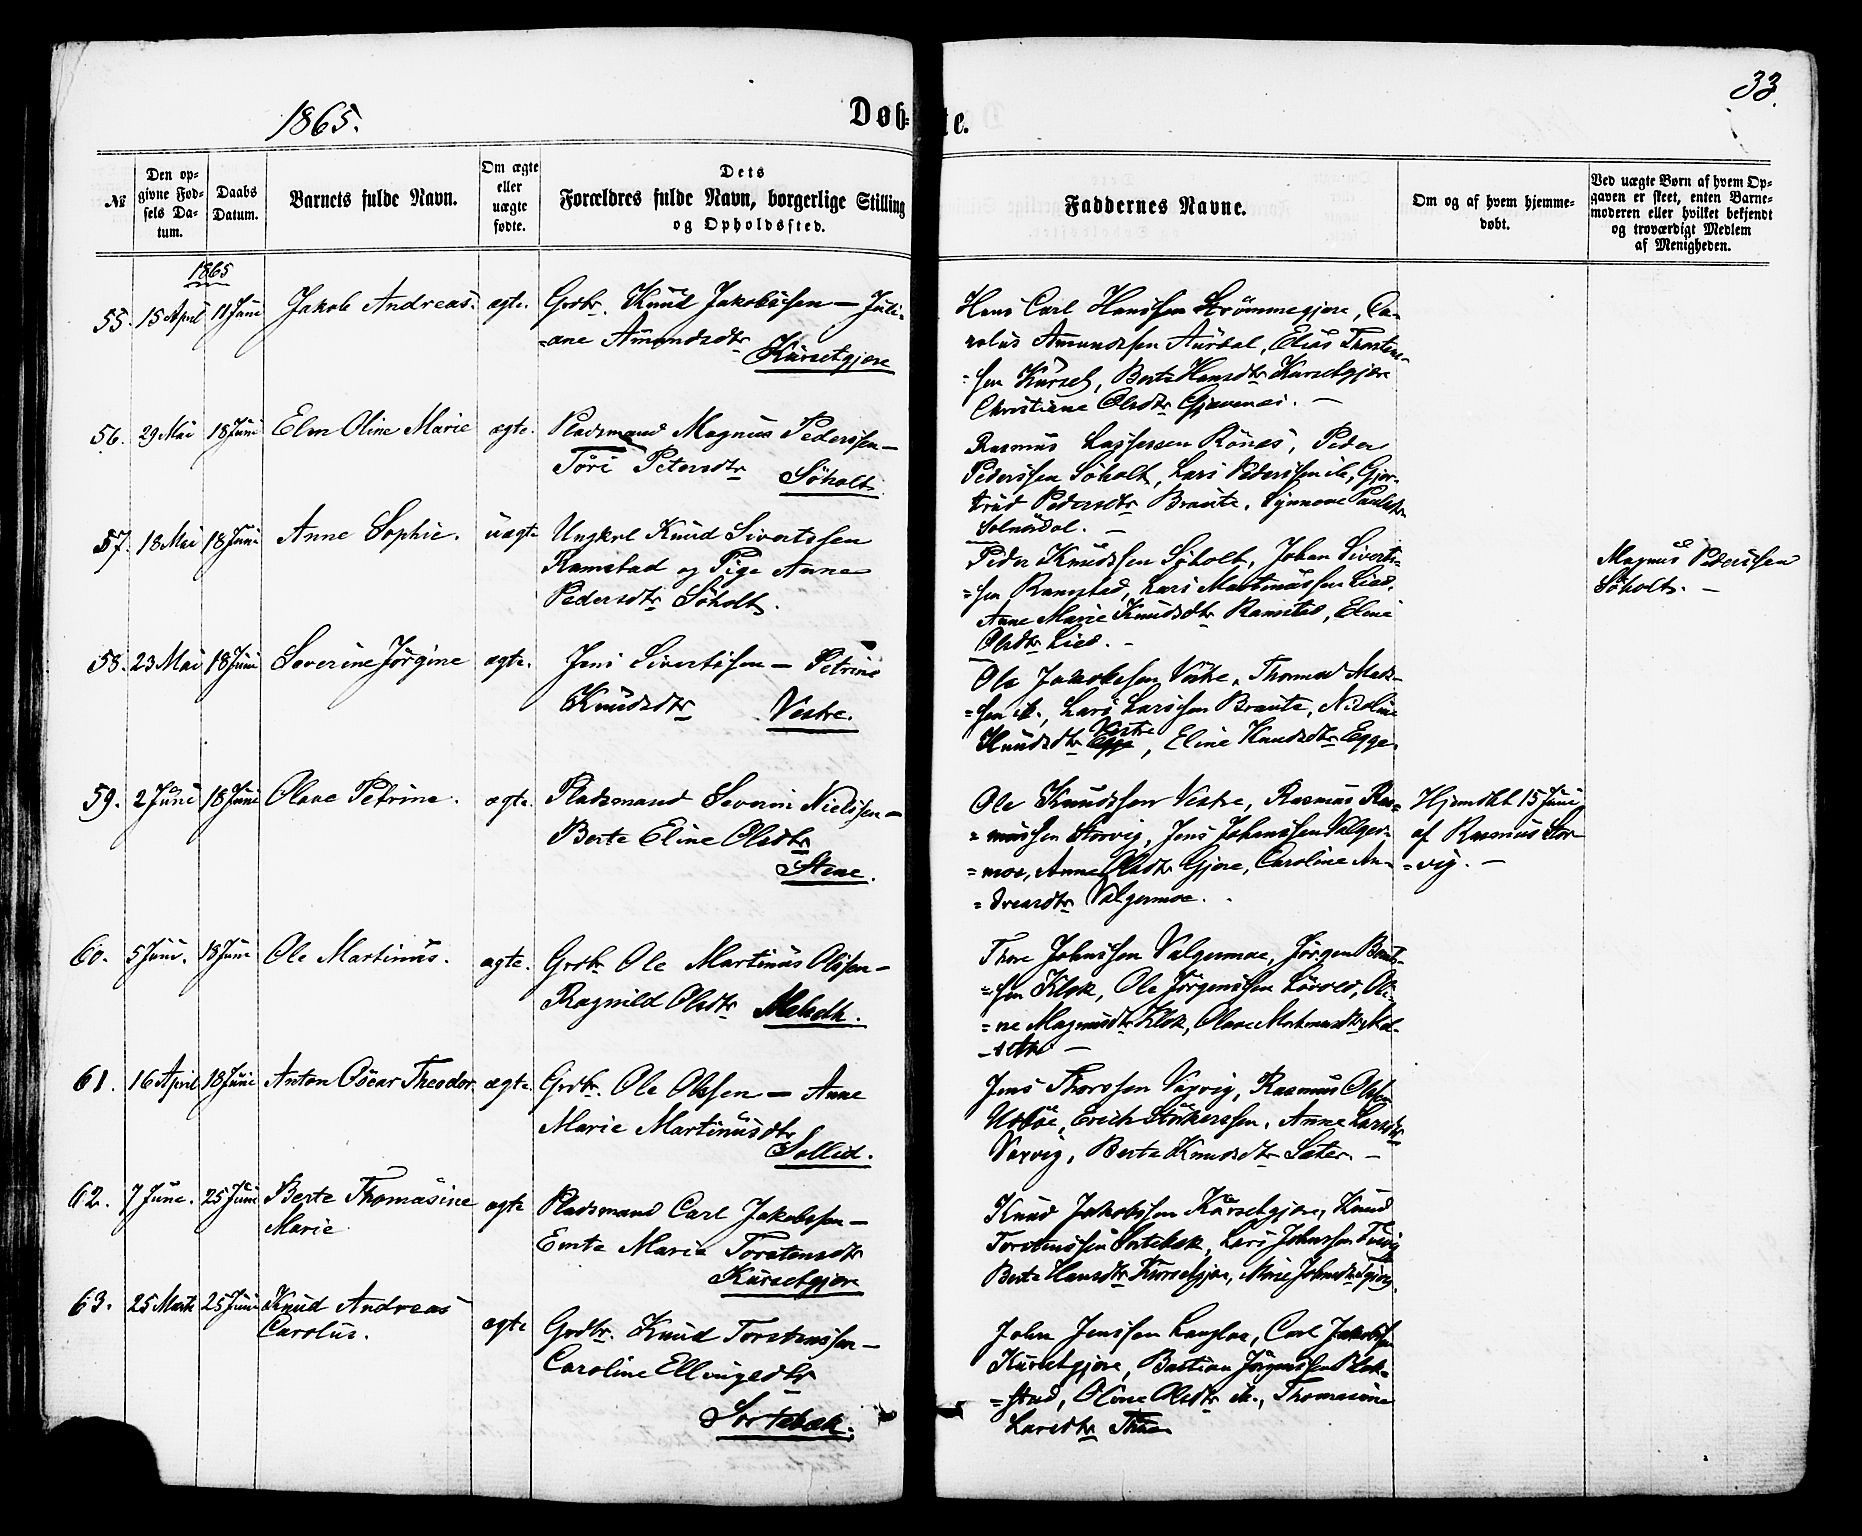 33.
1865.
Døbte.
№
Den opgivne Fødsels Datum.
Daabs Datum.
Barnets fulde Navn.
Om ægte eller uægte fødte.
Dets Forældres fulde Navn, borgerlige Stilling og Opholdssted.
Faddernes Navne.
Om og af hvem hjemmedøbt.
Ved uægte Børn af hvem Opgaven er skeet, enten Barnemoderen eller hvilket bekjendt og troværdigt Medlem af Menigheden.
1865
55. 15 April 11 Juni Jakob Andreas. ægte. Grdbr. Knud Jakobssen — Juli-
=ane Amundsdtr
Kursetgjere
Hans Carl Hanssen Strømmegjere, Ca-
rolus Amundssen Aurdal, Elias Thorstens-
=sen Kurset, Berte Hansdtr Kursetgjere
Christiane Olsdtr
56. 29 Mai 18 Juni Elen Oline Marie ægte. Pladsmand Magnus Pederssen —
Turi Petersdtr
Søholt.
Rasmus Lassessen Rønes, Peder
Pederssen Søholt, Lars Pederssen ib., Gjer-
trud Pedersdtr Braute, Synnove Paulsdtr
Solnørdal. —
57. 18 Mai 18 Juni Anne Sophie. uægte Ungkrl Knud Sivertssen
Ramstad og Pige Anne
Pedersdtr Søholt.
Peder Knudssen Søholt, Johan Siverts-
=sen Ramstad, Lars Martinussen Lied.
Anne Marie Knudsdtr Ramstad, Eline
Olsdtr Lied. —
Magnus Pederssen
Søholt. —
58. 23 Mai 18 Juni Severine Jørgine ægte. Jens Sivertssen — Petrine
Knudsdtr Vestre.
Ole Jakobssen Vestre, Thomas Mads-
=sen ib., Lars Larssen Braute, Nicoline
Knudsdtr Vestre, Eline Knudsdtr Egge
59. 2 Juni 18 Juni Olave Petrine. ægte. Pladsmand Severin Nielssen —
Berte Eline Olsdtr
Stene.
Ole Knudssen Vestre, Rasmus Ras-
=mussen Storvig, Jens Johanssen Valger-
=moe, Anne Olsdtr Gjere, Caroline An-
=dreasdtr Valgermoe.
Hjemdbt 15 Juni
af Rasmus Stor-
=vig. —
60. 5 Juni. 18 Juni Ole Martinus. ægte. Grdbr Ole Martinus Olssen —
Ragnild Olsdtr Melseth.
Thore Johnssen Valgermoe, Jørgen Bernts-
=sen Klok, Ole Jørgenssen Løvold, Oli-
=ne Magnusdtr Klok, Olave Martinusdtr Mel-
-seth —
61. 16 April 18 Juni Anton Oscar Theodor. ægte. Grdbr. Ole Olssen — Anne
Marie Martinusdtr
Sollid.
Jens Thorssen Vaxvig, Rasmus Olssen
Erich Anne Larsdtr
Vaxvig, Berte Knudsdtr Sæter. —
62. 7 June. 25 Juni Berte Thomasine
Marie
ægte Pladsmand Carl Jakobssen —
Emte Marie Torstensdtr
Kursetgjere
Knud Jakobssen Kursetgjere, Knud
Torstenssen Sortebak, Lars Johnssen
Berte Hansdtr Kursetgjere, Marie Johnsdtr
63. 25 Marts 25 Juni Knud Andreas
Carolus.
ægte Grdbr. Knud Torstenssen —
Caroline Ellingsdtr
Sortebak.
John Jenssen Langloe, Carl Jakobssen
Kursetgjere, Bastian Jørgenssen Blak-
=stad, Oline Olsdtr ib., Thomasine
Larsdtr